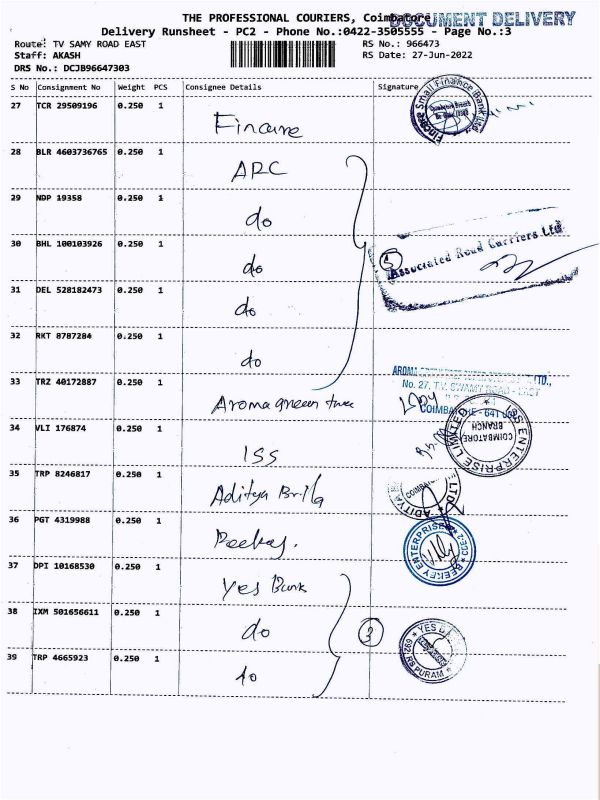 THE PROFESSIONAL COURIERS, Coimbatore
DOCUMENT DELIVERY
Delivery Runsheet - PC2 - Phone No.:0422-3505555 - Page No.:3
Route: TV SAMY ROAD EAST RS No.: 966473
Staff: AKASH RS Date: 27-Jun-2022
DRS No.: DCJB96647303
S No Consignment No Weight PCS Consignee Details Signature
27 TCR 29509196 0.250 1 Fincare
Fincare Small Finance Bank Ltd
28 BLR 4603736765 0.250 1 ARC
29 NDP 19358 0.250 1 do
30 BHL 100103926 0.250 1 do
5 Associated Road Carriers Ltd
31 DEL 528182473 0.250 1 do
32 RKT 8787284 0.250 1 do
33 TRZ 40172887 0.250 1 Aroma green tree
No. 27, T.V. SWAMY ROAD EAST
34 VLI 176874 0.250 1 ISS
COIMBATORE BRANCH
35 TRP 8246817 0.250 1 Aditya Birla
36 PGT 4319988 0.250 1 Beekay.
BEEKEY ENTERPRISE CBE-2
37 DPI 10168530 0.250 1 Yes Bank
38 IXM 501656611 0.250 1 do 3
YES
692, RS PURAM
39 TRP 4665923 0.250 1 do